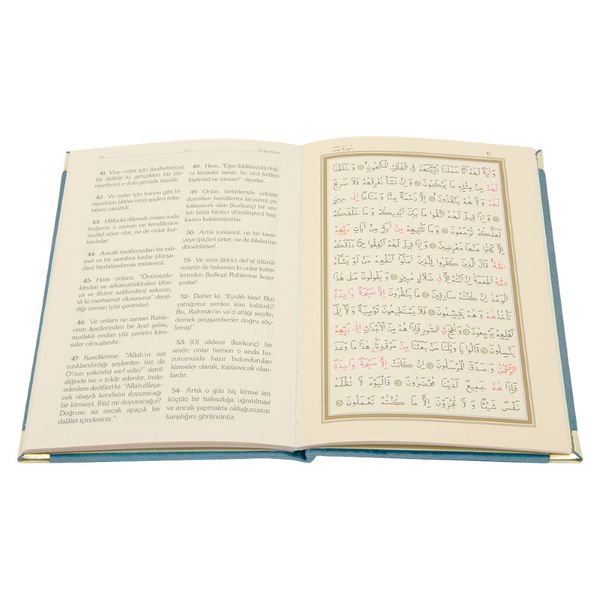 41- Yine onlar için (kudretimize)
bir delildir ki, gerçekten biz dür-
riyetlerini o dolu gemide taşıdık.
42- Onlar için bunun gibi bi-
necekleri (daha nice) şeyleri (vâsı-
taları) yarattık.
43- Hâlbuki dilersek onları suda
boğarız; o zaman ne kendilerine
imdâd eden olur, ne de onlar kur-
tarılırlar.
44- Ancak tarafımızdan bir rah-
met ve bir zamâna kadar (dünya-
dan) faydalandırma müstesnâ.
45- Hem onlara: "Önünüzde-
kinden ve arkanızdakinden (dün-
ya ve âhiret azâbından) sakının;
tâ ki merhamet olunasınız" denil-
diği zaman (yüz çevirirler).
46- Ve onlara ne zaman Rable-
rinin âyetlerinden bir âyet gelse,
mutlaka ondan yüz çeviren kim-
seler olmuşlardır.
47- Kendilerine: "Allah'ın sizi
rızıklandırdığı şeylerden (siz de
O'nun yolunda) sarf edin!" denildi-
ğinde ise o inkâr edenler, îmân
edenlere dediler ki: "Allah dileye-
cek olsaydı kendisini doyuracağı
bir kimseyi, (biz) mi doyuracağız?
Doğrusu siz ancak apaçık bir
dalâlet içindesiniz."
48- Hem, "Eğer (iddiânızda) doğ-
ru kimseler iseniz, bu vaad (edilen
kıyâmet) ne zaman?" diyorlar.
49- Onlar, birbirleriyle çekişip
dururlarken kendilerini (ansızın) ya-
kalayacak olan (korkunç) bir ses-
den (sûra birinci üfürülüşten) baş-
kasını beklemiyorlar.
50- Artık (onlar) ne bir tavsi-
yeye güçleri yeter, ne de âilelerine
dönebilirler!
51- Ve sûra (ikinci def'a) üfürül-
müştür de bakarsın ki onlar kabir-
lerinden (kalkıp) Rablerine koşu-
yorlar.
52- Derler ki: "Eyvâh bize! Bizi
yattığımız yerden kim kaldırdı?
Bu, Rahmân'ın va'd ettiği şeydir;
demek peygamberler doğru söyle-
miş!"
53- (O) sâdece (korkunç) bir
sestir; onlar hemen o anda hu-
zurumuzda hazır bulundurulan
kimseler olarak, toplanacak olan-
lardır.
54- Artık o gün hiç kimse (en
küçük) bir haksızlığa uğratılmaz
ve ancak yapmakta olduğunuzun
karşılığını görürsünüz.
وَاٰيَةٌ لَهُمْ اَنَّا حَمَلْنَا ذُرِّيَّتَهُمْ فِي الْفُلْكِ الْمَشْحُونِ ۞ وَخَلَقْنَا
لَهُمْ مِنْ مِثْلِهِ مَا يَرْكَبُونَ ۞ وَاِنْ نَشَأْ نُغْرِقْهُمْ فَلَا صَرِيخَ
لَهُمْ وَلَا هُمْ يُنْقَذُونَ ۞ اِلَّا رَحْمَةً مِنَّا وَمَتَاعًا اِلٰى
حِينٍ ۞ وَاِذَا قِيلَ لَهُمُ اتَّقُوا مَا بَيْنَ اَيْدِيكُمْ وَمَا خَلْفَكُمْ
لَعَلَّكُمْ تُرْحَمُونَ ۞ وَمَا تَأْتِيهِمْ مِنْ اٰيَةٍ مِنْ اٰيَاتِ رَبِّهِمْ
اِلَّا كَانُوا عَنْهَا مُعْرِضِينَ ۞ وَاِذَا قِيلَ لَهُمْ اَنْفِقُوا مِمَّا رَزَقَكُمُ
اللّٰهُ قَالَ الَّذِينَ كَفَرُوا لِلَّذِينَ اٰمَنُوا اَنُطْعِمُ مَنْ لَوْ يَشَاءُ
اللّٰهُ اَطْعَمَهُ اِنْ اَنْتُمْ اِلَّا فِي ضَلَالٍ مُبِينٍ ۞ وَيَقُولُونَ مَتٰى هٰذَا
الْوَعْدُ اِنْ كُنْتُمْ صَادِقِينَ ۞ مَا يَنْظُرُونَ اِلَّا صَيْحَةً وَاحِدَةً
تَأْخُذُهُمْ وَهُمْ يَخِصِّمُونَ ۞ فَلَا يَسْتَطِيعُونَ تَوْصِيَةً وَلَا اِلٰى
اَهْلِهِمْ يَرْجِعُونَ ۞ وَنُفِخَ فِي الصُّورِ فَاِذَا هُمْ مِنَ الْاَجْدَاثِ اِلٰى رَبِّهِمْ
يَنْسِلُونَ ۞ قَالُوا يَا وَيْلَنَا مَنْ بَعَثَنَا مِنْ مَرْقَدِنَا هٰذَا مَا وَعَدَ
الرَّحْمٰنُ وَصَدَقَ الْمُرْسَلُونَ ۞ اِنْ كَانَتْ اِلَّا صَيْحَةً وَاحِدَةً
فَاِذَا هُمْ جَمِيعٌ لَدَيْنَا مُحْضَرُونَ ۞ فَالْيَوْمَ لَا تُظْلَمُ
نَفْسٌ شَيْئًا وَلَا تُجْزَوْنَ اِلَّا مَا كُنْتُمْ تَعْمَلُونَ ۞